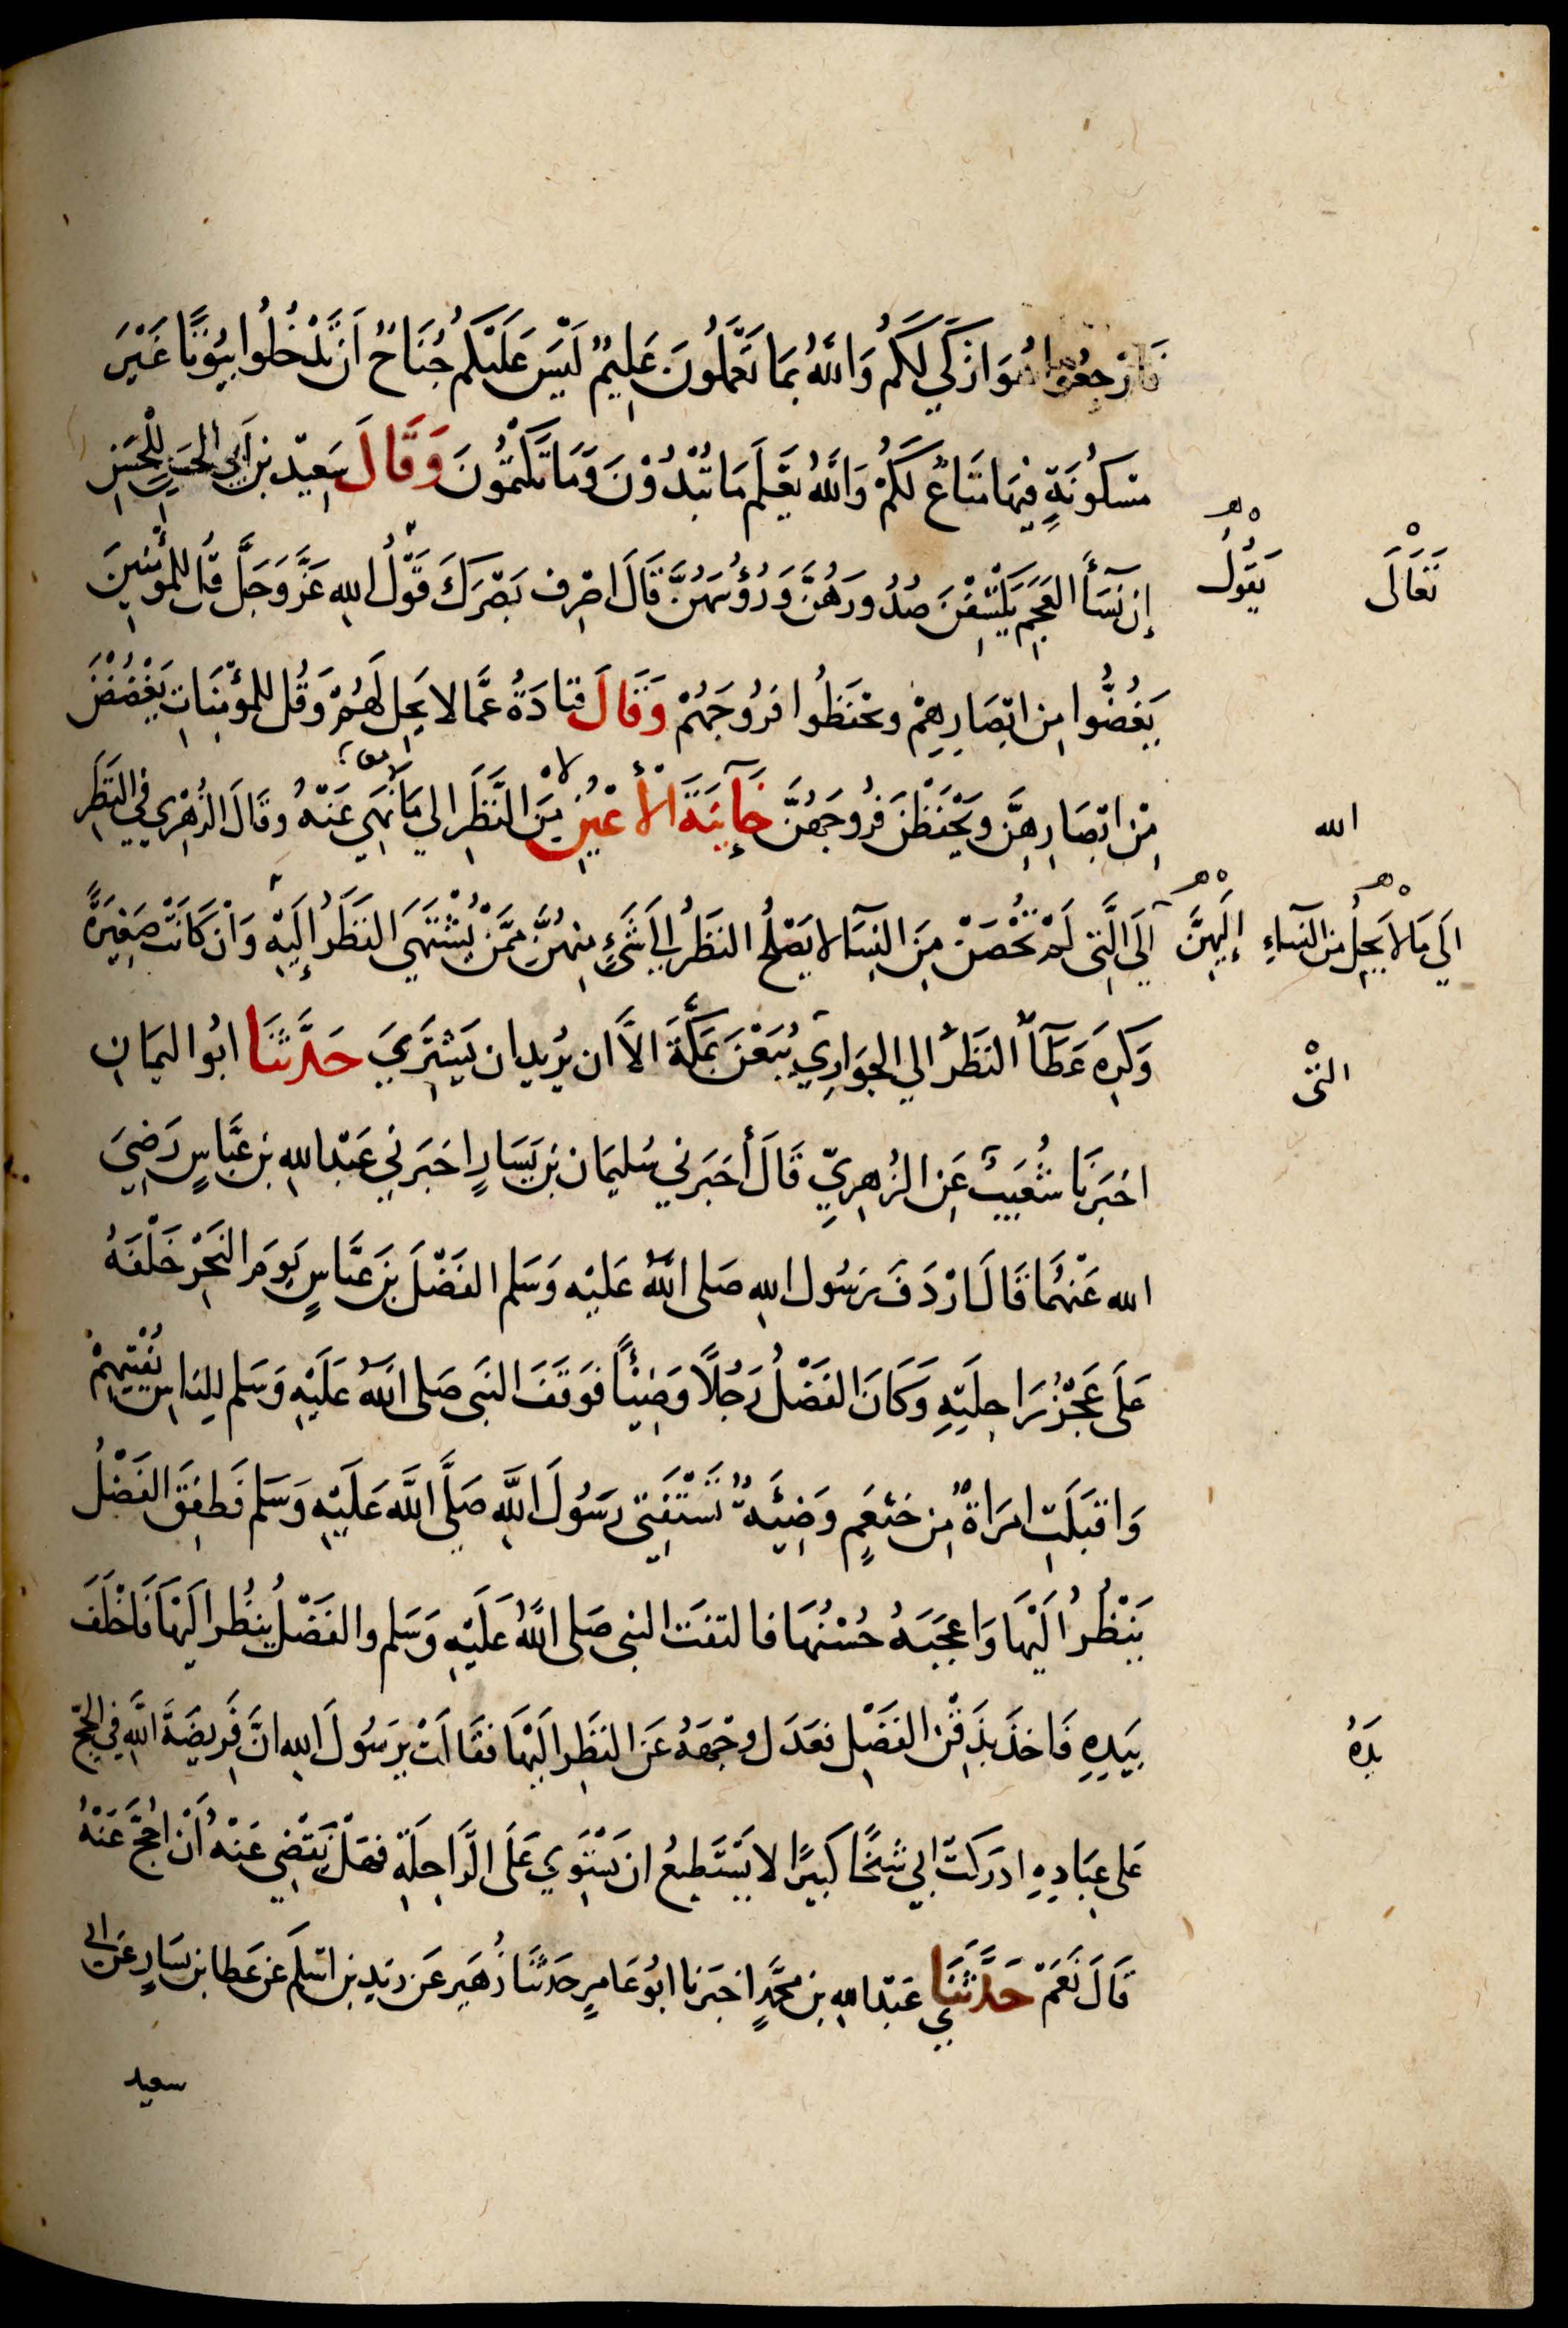 فَارْجِعُوا هُوَ ازكَي لَكُم وَاللهُ بِمَا تَعْمَلُونَ عَلِيمٌ لَيْسَ عَلَيْكُم جُنَاحٌ اَن تَدْخُلُوا بُيُوتًا غَيْرَ
مَسكُونَةٍ فِيهَا مَتَاعٌ لَكُمْ وَاللهُ يَعْلَم مَا تُبْدُوْنَ وَمَا تَكْتُمُونَ وَقَالَ سَعِيد بن اَبِي الحَسَنِ لِلْحَسَنِ
إن نِسَاَ العَجَم يَكْشِفْنَ صُدُورَهُنَّ وَرُؤُسَهُنَّ قَالَ اصْرِف بَصَرَكَ قَوْلُ اللهِ عَزَّ وَجَلَّ قُل لِلمُؤْمِنِينَ
يَقُولُ
تَعَالَى
يَغُضُّوا مِن ابْصَارِهِمْ ويَحْفَظُوا فُرُوجَهُمْ وَقَالَ قتادَةُ عَمَّا لا يَحِل لَهُمْ وَقُل لِلمُؤْمِنَاتِ يَغْضُضْنَ
مِنْ ابْصَارِهِنَّ وَيَحْفَظْنَ فُرُوجَهُنَّ خَآيِنَةَ الْأَعْيُنِ مِنَ النَّظَرِ الي مَا نُهِي عَنْهُ وقَالَ الزُهْرِي فِي النَّظَرِ
الله
اِلَي الَّتِي لَمْ تَحُصْن مِنَ النِسَآ لا يَصْلُحُ النَظَرُ اِلَى شَيْءٍ مِنهُنَّ مِمَّنْ يُشْتَهَى النَظَرُ اِلَيْهِ وَاِنْ كَانَتْ صَغِيْرَةً
إِلَيْهِنَّ
الَي مَا لاَ يَحِلُّ مِن النِسَاءِ
وَكَرِهَ عَطَآ النَظَرَ الي الجَوَارِي يُبَعْنَ بمَكَّةَ الاَّ ان يرُيد ان يَشْتَرِيَ حَدَّثَنَا ابُو اليمَانِ
التى
اخبَرَنَا شُعَيبٌ عَنِ الزُهرِيِّ قَالَ أخبَرَنِي سُليمَان بْن يَسَارٍ اخبَرَنِي عَبْدُ اللهِ بن عَبَّاسٍ رَضِيَ
الله عَنْهُمَا قَالَ ارْدَفَ رَسُول اللهِ صَلى اللهُ عَليْه وَسَلم الفَضْلَ بنَ عَبَّاسٍ يَومَ النَحْرِ خَلْفَهُ
عَلَى عَجُزِ رَاحِلَتِهِ وَكَانَ الفَضْلُ رَجُلًا وَضِيئًا فوَقَفَ النَبى صَلى اللهُ عَلَيْهِ وَسَلم لِلنَاسِ يُفْتِيهِمْ
وَاقبَلَتِ امرَاةٌ مِن خَثعَمٍ وَضِيئَةٌ تَسْتَفْتِى رَسُولَ اللَّهِ صَلَّى اللَّه عَلَيْهِ وَسَلم فَطفِقَ الفَضْلُ
يَنْظُرُ اليْهَا وَاعجَبَهُ حُسْنُهَا فالتفَتَ النبى صَلى اللهُ عَلَيْهِ وَسَلم والفَضْلُ ينظُر اليْهَا فَاَخْلَفَ
بِيَدِهِ فَاخذَ بِذَقَنِ الفَضْلِ فعَدَل وجْهَهُ عَن النَظَرِ اليْهَا فقَالَتْ يرَسُولَ اللهِ انَّ فَرِيضَةَ اللَّهِ فِي الحَجِّ
يدَهُ
عَلى عِبَادِهِ ادرَكَتْ ابِي شَيخًا كبيرًا لا يَسْتَطيعُ ان يَسْتَوِي عَلَى الرَّاحِلَةِ فهَلْ يَقْضِي عَنْهُ أَنْ احُجَّ عَنْهُ
قَالَ نَعَمْ حَدَّثَنَا عَبْدُ اللهِ بن محَمَّدٍ اخبَرنا ابُو عَامرٍ حَدثَنَا زُهَير عَن زيد بن اسْلَم عَن عَطا بن يسَارٍ عَن ابى
سعيد